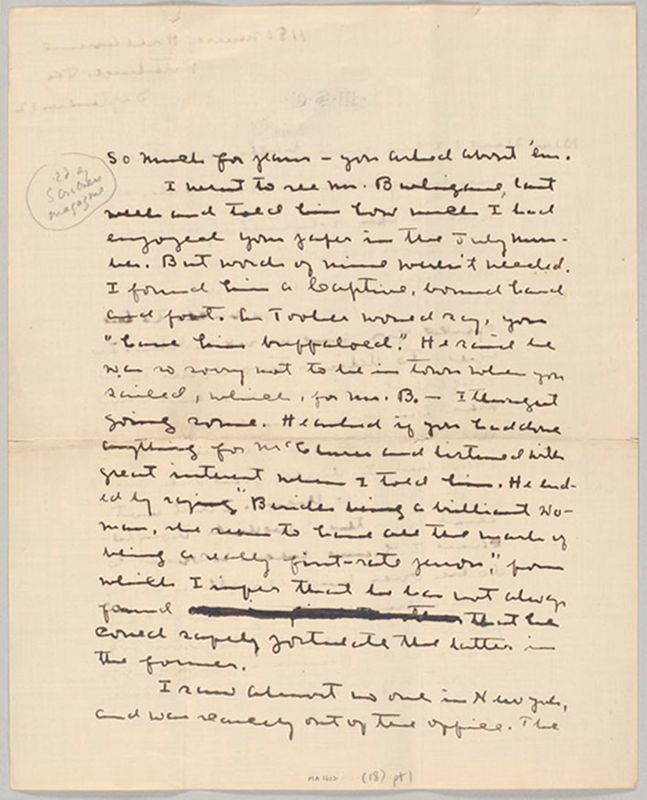 So much for plans – you asked about 'em.
I went to see Mr. Burlingame, last
week and told him how much I had
enjoyed your paper in the July num-
ber. But words of mine weren't needed.
I found him a captive, bound hand
and foot. As Tooker would say, you
"have him buffaloed." He said he
was so sorry not to be in town when you
sailed, which, for Mr. B. – I thought
going some. He asked if you had done
anything for McClures and listened with
great interest when I told him. He end-
ed by saying "Besides being a brilliant wo-
man, she seems to have all the marks of
being a really first-rate person," from
which I infer that he has not always
found that he
could safely postulate the latter in
the former.
I saw almost no one in New York,
and was scarcely out of the office. The
ed of
Scribners
magazine
MA 1602 (18) pt 1